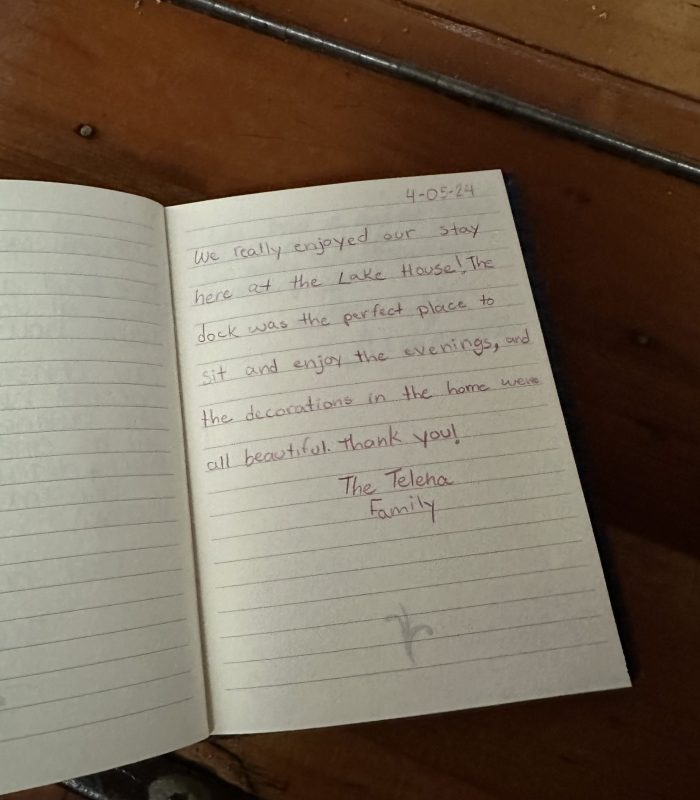 4-05-24
We really enjoyed our stay
here at the Lake House! The
dock was the perfect place to
sit and enjoy the evenings, and
the decorations in the home were
all beautiful. Thank you!
The Telena
Family